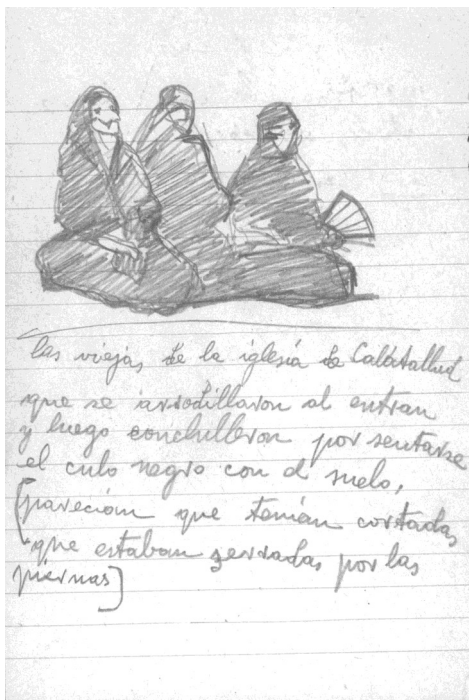 las viejas de la iglesia de Calatallud
que se arrodillaron al entran
y luego conchulleron por sentarse
el culo negro con el suelo,
[parecian que tenian cortadas
que estaban serradas por las
piernas]